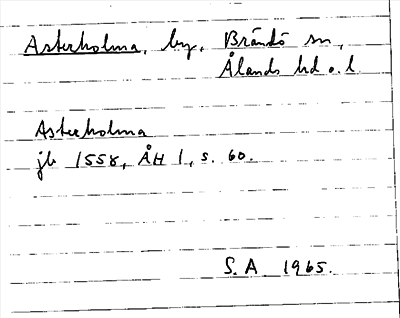 Asterholma, by, Brändö sn,
Ålands hd o. l.
Asterholma
jb 1558, ÅH 1, s. 60.
S. A 1965.